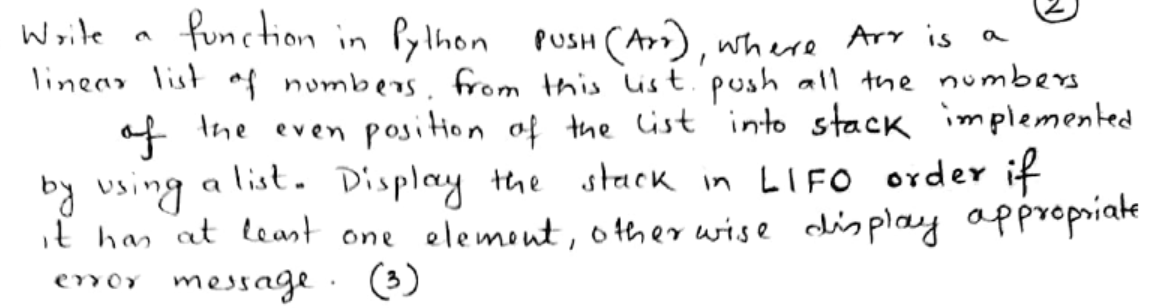 ②
Write a function in Python PUSH(Arr), where Arr is a
linear list of numbers. from this list push all the numbers
of the even position of the list into stack implemented
by using a list. Display the stack in LIFO order if
it has at least one element, otherwise display appropriate
error message. (3)